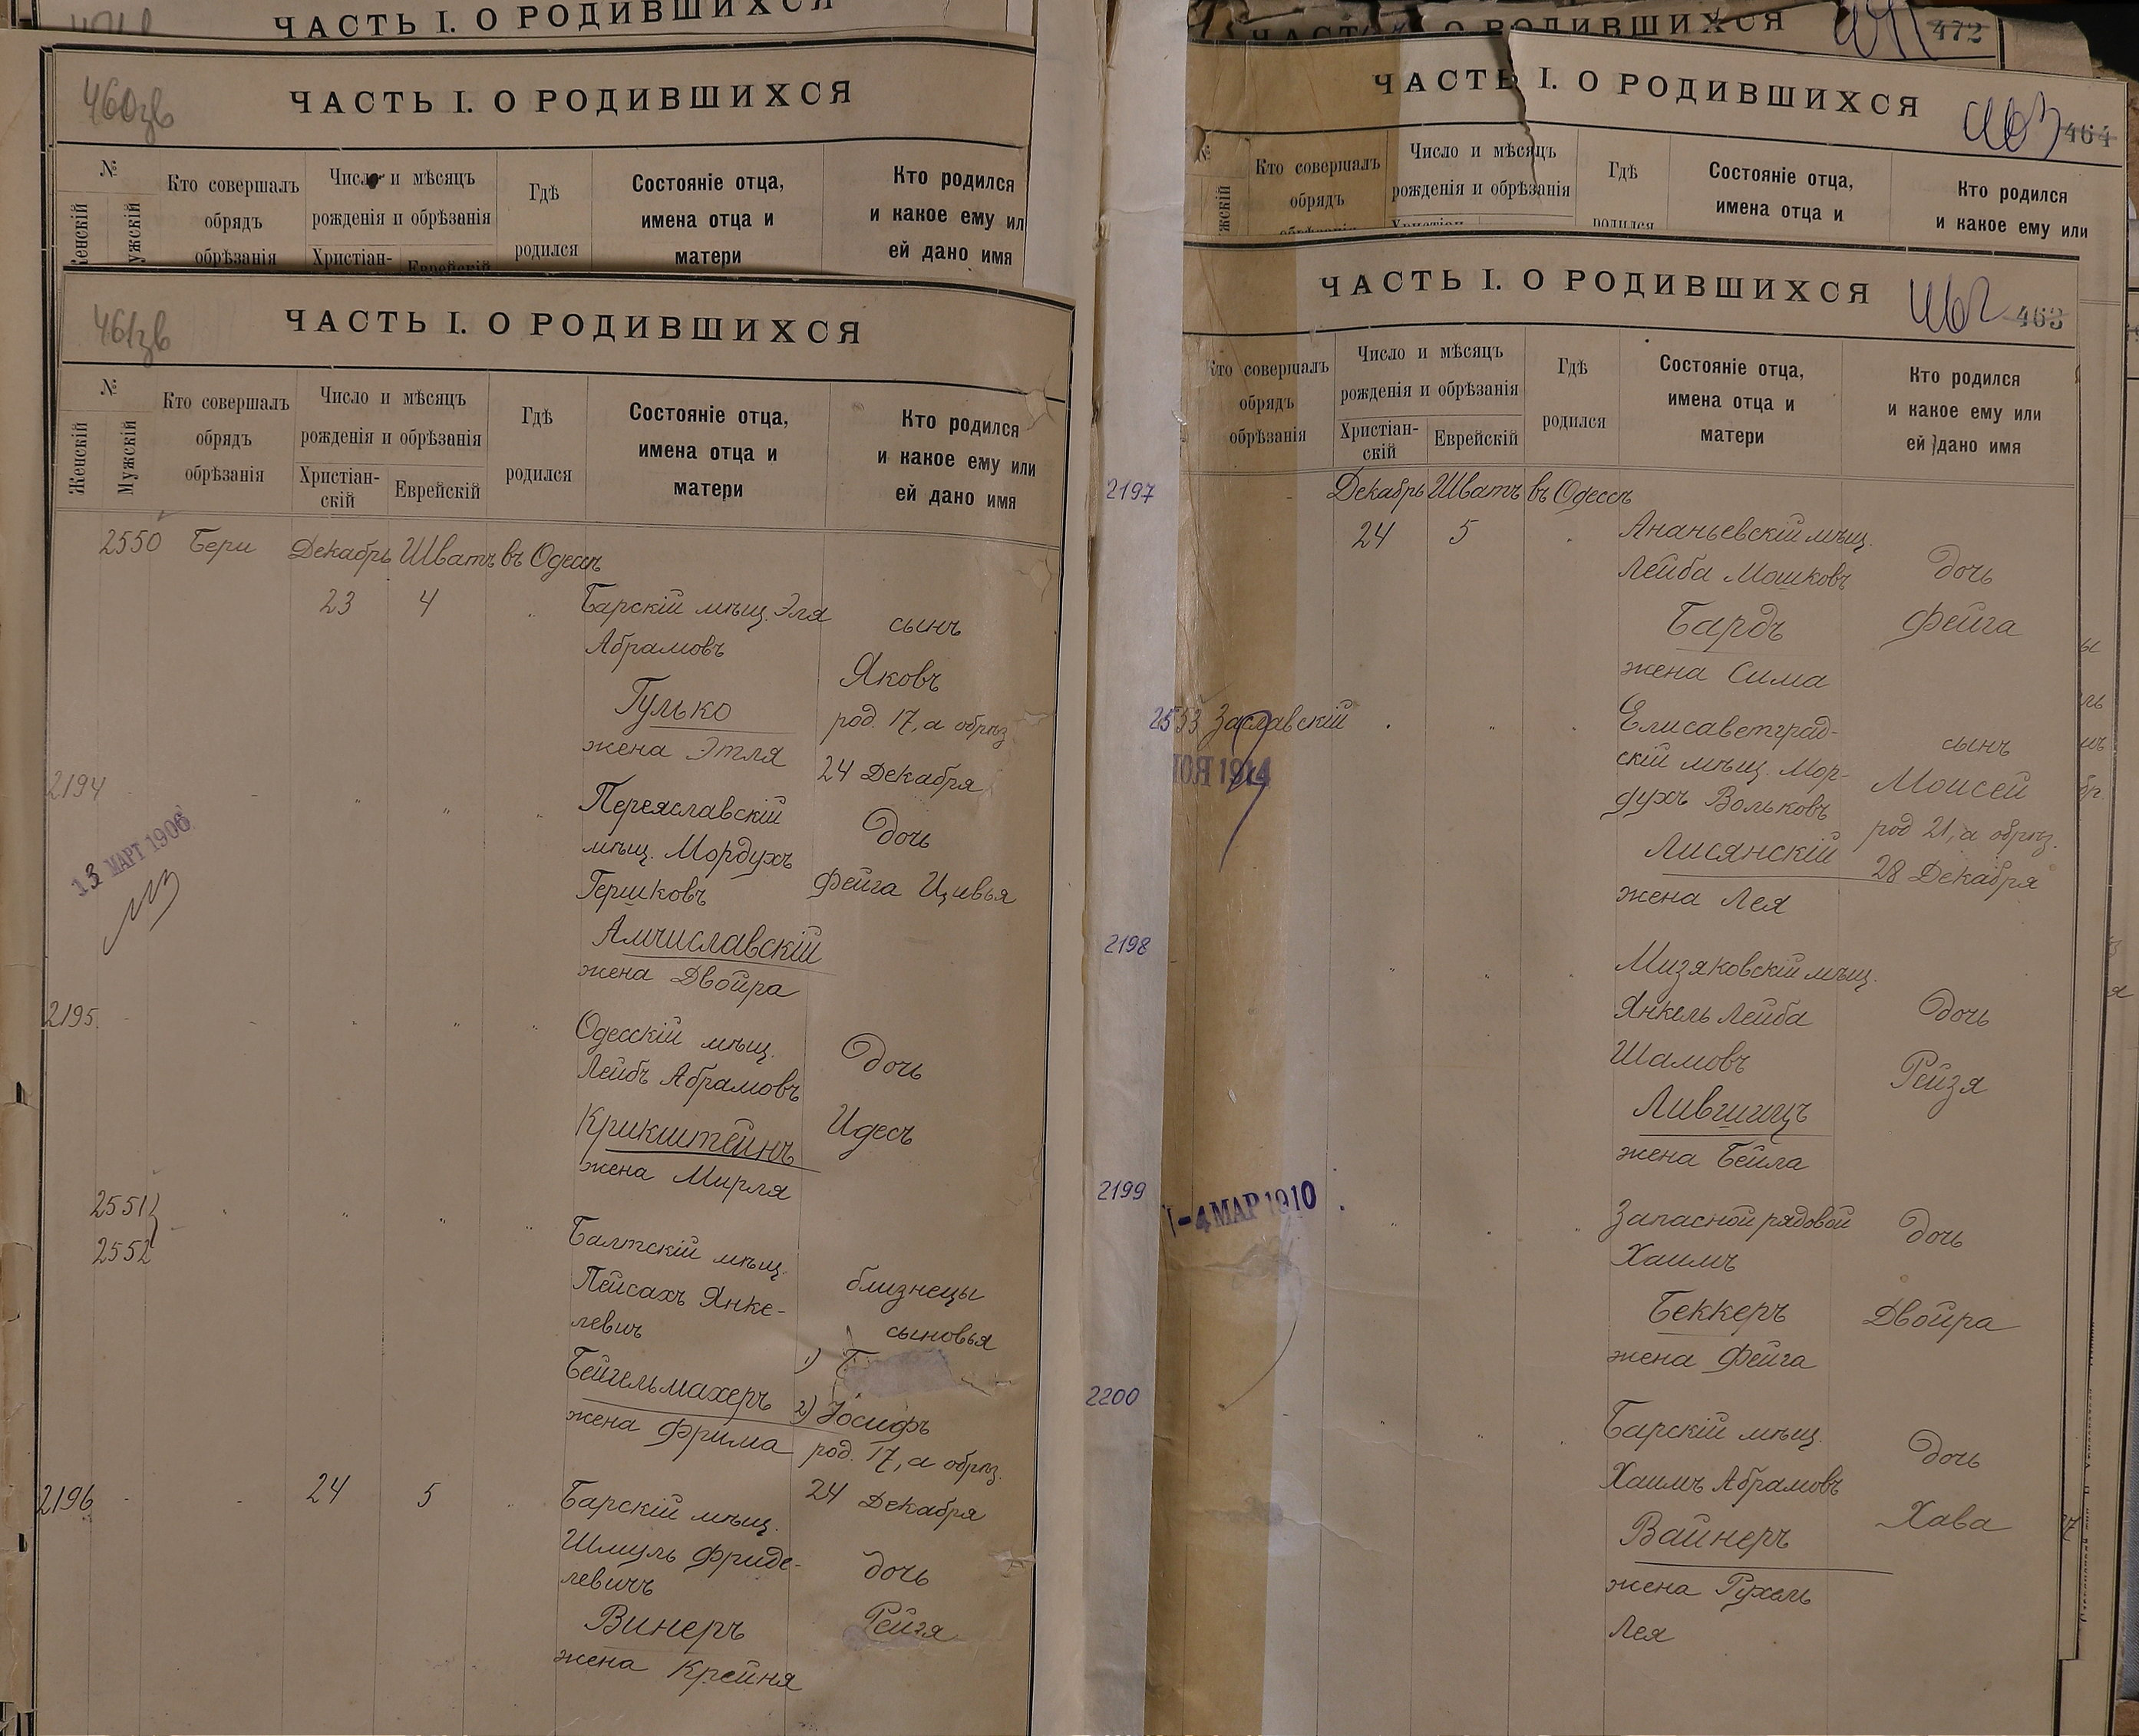 ЧАСТЬ I. О РОДИВШИХСЯ
460зв
ЧАСТЬ I. О РОДИВШИХСЯ
№
Женскій
Мужскій
Кто совершалъ
обрядъ
обрѣзанія
Число и мѣсяцъ
рожденія и обрѣзанія
Христіан-
Еврейскій
Гдѣ
родился
Состояніе отца,
имена отца и
матери
Кто родился
и какое ему ил
ей дано имя
461зв
ЧАСТЬ I. О РОДИВШИХСЯ
№
Женскій
Мужскій
Кто совершалъ
обрядъ
обрѣзанія
Число и мѣсяцъ
рожденія и обрѣзанія
Христіан-
скій
Еврейскій
Гдѣ
родился
Состояніе отца,
имена отца и
матери
Кто родился
и какое ему или
ей дано имя
2550 Бери Декабрь Шватъ въ Одессѣ
23 4 Барскій мѣщ. Эля
Абрамовъ
Гулько
жена Этля
сынъ
Яковъ
род. 17, а обрѣз
24 Декабря
2194
13 МАРТ 1906
Переяславскій
мѣщ. Мордухъ
Гершковъ
Амчиславскій
жена Двойра
дочь
Фейга Цивья
2195
Одесскій мѣщ.
Лейбъ Абрамовъ
Крикштейнъ
жена Мирля
дочь
Идесъ
2551
2552
Балтскій мѣщ.
Пейсахъ Янке-
левичъ
Бейгельмахеръ
жена Фрима
близнецы
сыновья
1)
2) Іосифъ
род. 17, а обрѣз.
24 Декабря
2196 24 5
Барскій мѣщ.
Шмуль Фриде-
левичъ
Винеръ
жена Крейня
дочь
Рейзя
ЧАСТЬ I. О РОДИВШИХСЯ
472
ЧАСТЬ I. О РОДИВШИХСЯ
463 464
№
Кто совершалъ
обрядъ
обрѣзанія
Число и мѣсяцъ
рожденія и обрѣзанія
Христіан-
Гдѣ
родился
Состояніе отца,
имена отца и
Кто родился
и какое ему или
ЧАСТЬ I. О РОДИВШИХСЯ
462 463
Кто совершалъ
обрядъ
обрѣзанія
Число и мѣсяцъ
рожденія и обрѣзанія
Христіан-
скій
Еврейскій
Гдѣ
родился
Состояніе отца,
имена отца и
матери
Кто родился
и какое ему или
ей дано имя
2197
Декабрь Шватъ въ Одессѣ
24 5
Ананьевскій мѣщ.
Лейба Мошковъ
Бардъ
жена Сима
дочь
Фейга
2553 Заславскій
1914
Елисаветград-
скій мѣщ. Мор-
духъ Вольковъ
Лисянскій
жена Лея
сынъ
Моисей
род 21, а обрѣз.
28 Декабря
2198
Мизяковскій мѣщ.
Янкель Лейба
Шамовъ
Лившицъ
жена Бейла
дочь
Рейзя
2199
-4 МАР 1910
Запасной рядовой
Хаимъ
Беккеръ
жена Фейга
дочь
Двойра
2200
Барскій мѣщ.
Хаимъ Абрамовъ
Вайнеръ
жена Рухель
Лея
дочь
Хава